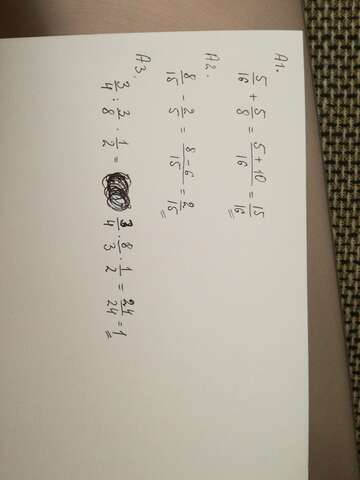 A1.
5/16 + 5/8 = 5+10/16 = 15/16
A2.
8/15 - 2/5 = 8-6/15 = 2/15
A3.
3/4 : 3/8 · 1/2 = 3/4 · 8/3 · 1/2 = 24/24 = 1